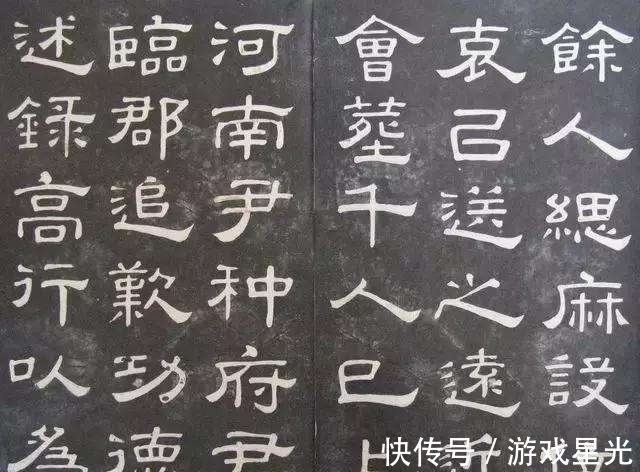 餘人緦麻設
哀已送之遠近
會塟千人已上
河南尹种府君
臨郡追歎功德
述録高行以為
快传号／游戏星光